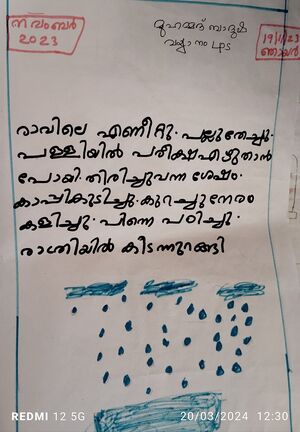 നവംബർ
2023
മുഹമ്മദ് ബാദുഷ
LPS
19/11/23
ഞായർ
രാവിലെ എണീറ്റു. പല്ലുതേച്ചു.
പള്ളിയിൽ പരീക്ഷഎഴുതാൻ
പോയി. തിരിച്ചുവന്ന ശേഷം.
കാപ്പികുടിച്ചു. കുറച്ചുനേരം
കളിച്ചു. പിന്നെ പഠിച്ചു.
രാത്രിയിൽ കിടന്നുറങ്ങി
REDMI 12 5G
20/03/2024 12:30